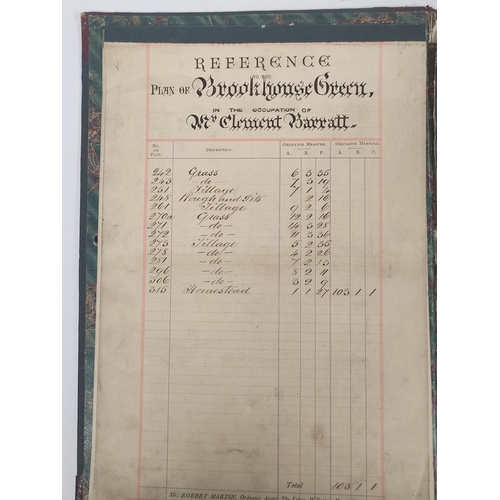 REFERENCE
TO THE
PLAN OF Brookhouse Green,
IN THE OCCUPATION OF
Mr Clement Barratt.
No. ON PLAN. DESCRIPTION. ORDNANCE MEASURE. ORDNANCE MEASURE.
A. R. P. A. R. P.
242 Grass 6 3 35
243 do 7 3 19
251 Tillage 7 1 4
248 Rough and Pits 2 16
261 Tillage 9 2 6
270a Grass 12 2 16
271 -do- 14 3 28
272 -do- 11 3 36
273 Tillage 5 2 35
278 -do- 4 2 26
281 -do- 7 2 13
296 -do- 8 2 11
306 -do- 3 2 9
313 Homestead 1 1 27 103 1 1
Total 103 1 1
Mr. ROBERT MARTIN, Ordnance Agent, The